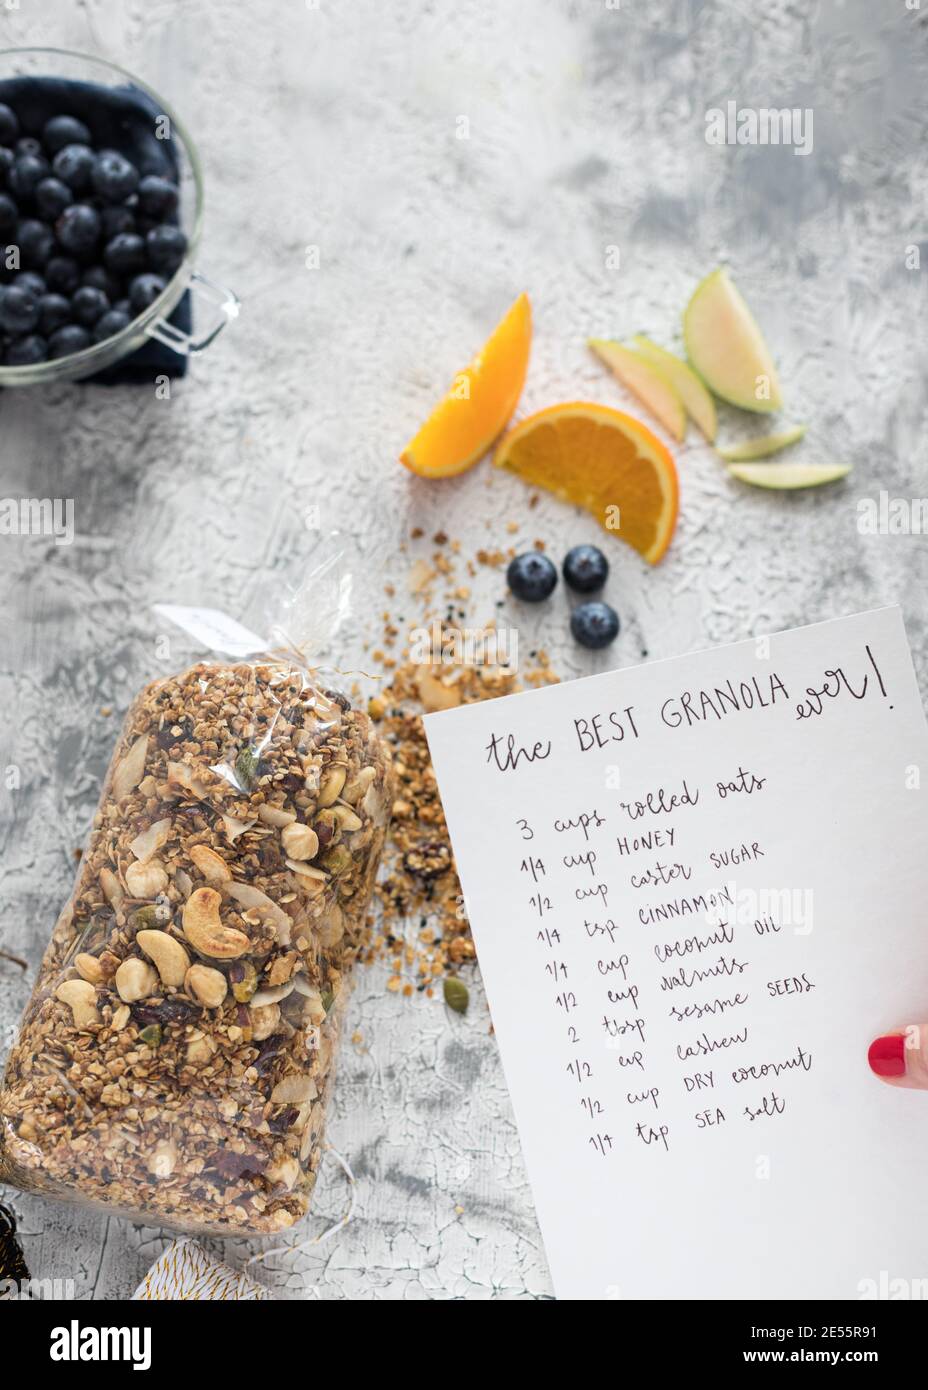 the BEST GRANOLA ever!
3 cups rolled oats
1/4 cup HONEY
1/2 cup caster SUGAR
1/4 tsp CINNAMON
1/4 cup coconut OIL
1/2 cup walnuts
2 tbsp sesame SEEDS
1/2 cup cashew
1/2 cup DRY coconut
1/4 tsp SEA salt
alamy
alamy
Image ID: 2E55R91
www.alamy.com